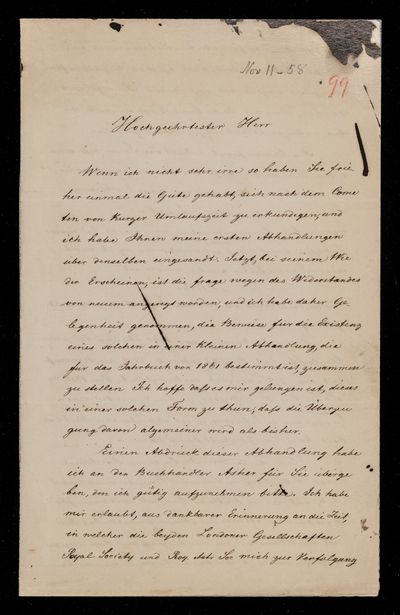 Nov 11 - 58
99
Hochgeehrtester Herr
Wenn ich nicht sehr irre so haben Sie frü-
her einmal die Güte gehabt, sich nach dem Come
ten von kurzer Umlaufszeit zu erkundigen, und
ich habe Ihnen meine ersten Abhandlungen
über denselben eingesandt. Jetzt, bei seinem Wie
der Erscheinen, ist die Frage wegen des Widerstandes
von neuem angeregt worden, und ich habe daher Ge
legenheit genommen, die Beweise für die Existenz
eines solchen in einer kleinen Abhandlung, die
für das Jahrbuch von 1861 bestimmt ist, zusammen
zu stellen Ich hoffe daß es mir gelungen ist, dieses
in einer solchen Form zu thun, daß die Überzeu
gung davon algemeiner wird als bisher.
Einen Abdruck dieser Abhandlung habe
ich an den Buchhändler Asher für Sie überge
ben, den ich gütig aufzunehmen bitte. Ich habe
mir erlaubt, aus dankbarer Erinnerung an die Zeit,
in welcher die beyden Londoner Gesellschaften
Royal Society und Roy. Astr. Soc mich zur Verfolgung